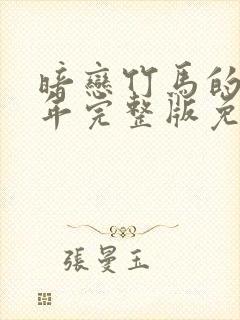 暗戀竹馬的
年完整版免
張曼玉